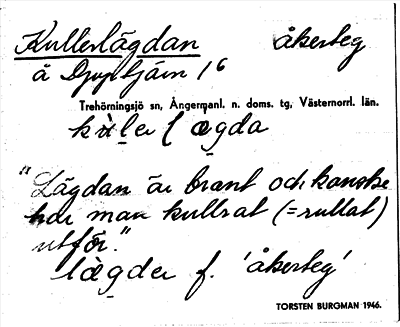 Kullerlägdan åkerteg
å Djuptjärn 1⁶
Trehörningsjö sn, Ångermanl. n. doms. tg, Västernorrl. län.
kùlerlægda
"Lägdan är brant och kanske
har man kullrat (=rullat)
utför."
lægder f. 'åkerteg'
TORSTEN BURGMAN 1946.